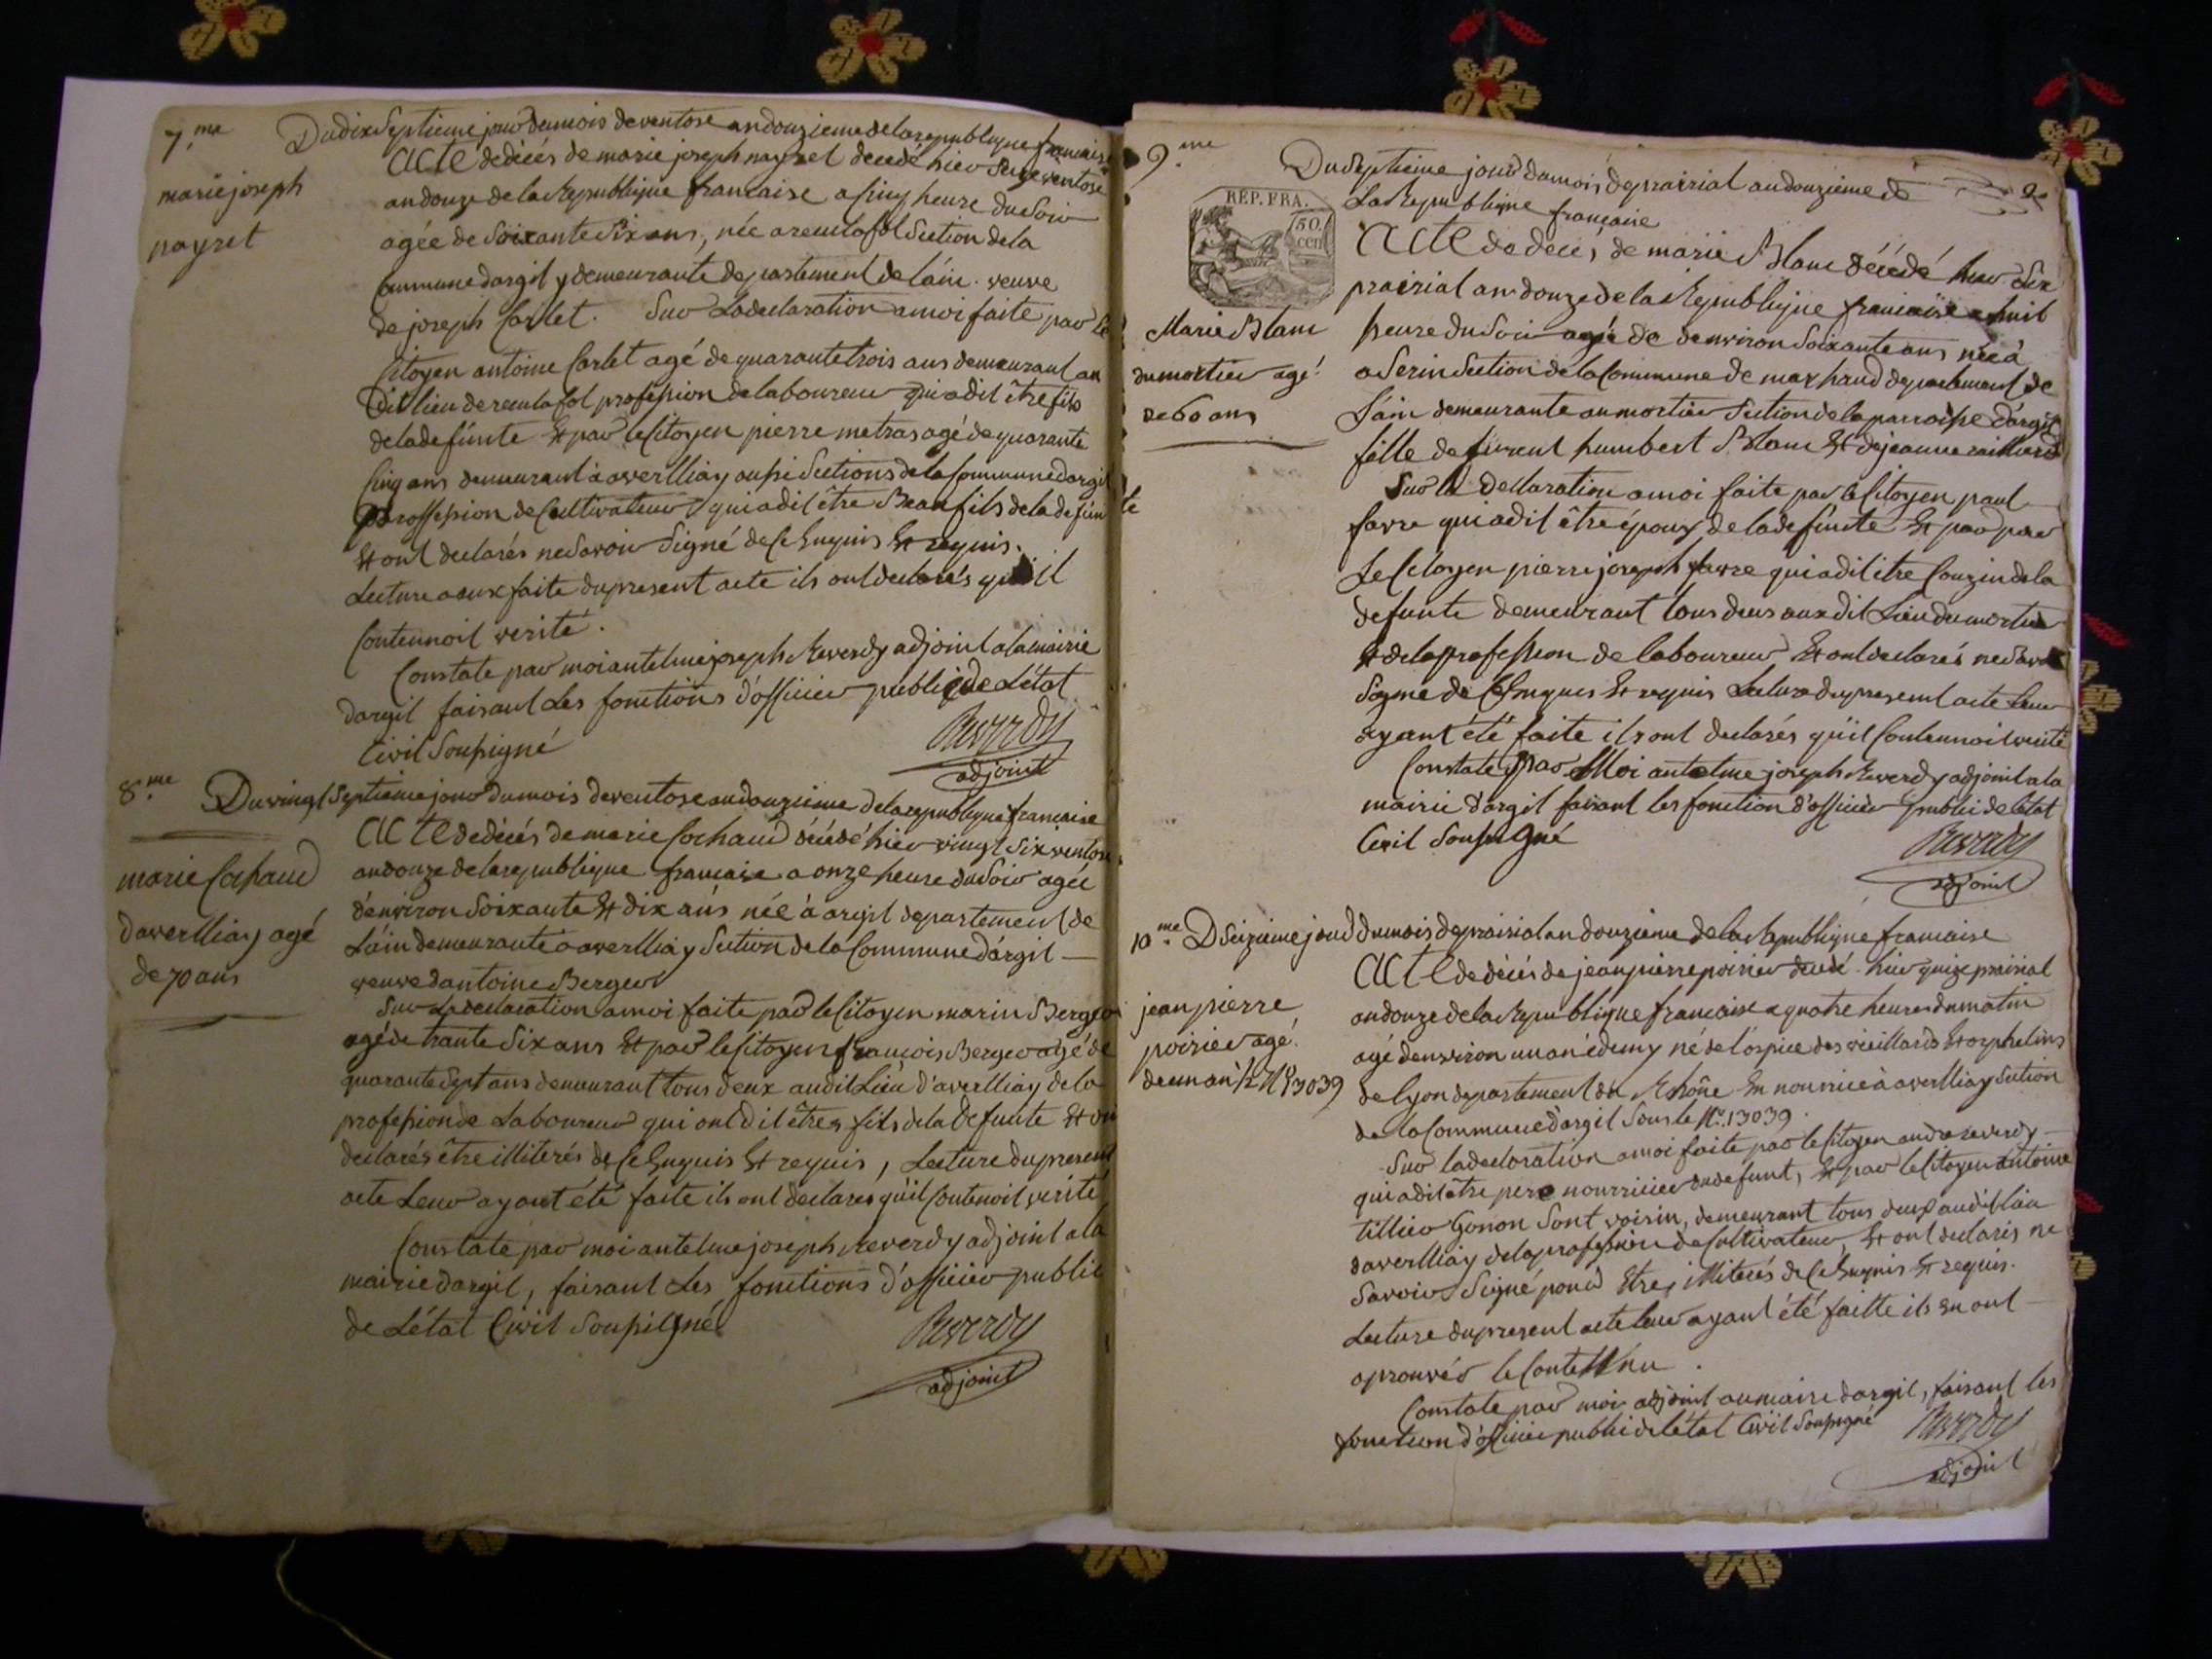 7.me
Du dix Septieme jour du mois de ventose an douzieme de la republique francaise
marie joseph
nayret
Acte de décés de marie joseph nayret decedé hier Seize ventose
an douze de la Republique francaise a Cinq heure du Soir
agée de Soixante Six ans, née a recula fol Section de la
Commune dargil y demeurante departement de láin. veuve
de joseph Carlet. Sur La declaration a moi faite par le
Citoyen antoine Carlet agé de quarante trois ans demeurant au
Dit lieu de recula fol profession de laboureur qui a dit être fils
de la defúnte Et par le Citoyen pierre metras agé de quarante
Cinq ans demeurant à averlliay aussi Sections de la Commune dargil
proffession de Cultivateur qui a dit être Beau fils de la defúnte
Et ont declarés ne Savoir Signé de Ce Enquis Et requis.
Lecture a eux faite du present acte ils ont declarés qu'il
Contennoit verité.
Constate par moi antelme joseph Reverdy adjoint a la mairie
dargil faisant Les fonctions d'officier public de L'état
Civil Soussigné
Reverdy
adjoint
8.me
Du vingt Septieme jour du mois de ventose an douzieme de la republique francaise
marie Cochaud
daverlliay agé
de 70 ans
Acte de décés de marie Cochaud décédé hier vingt Six ventose
an douze de la republique francaise a onze heure du Soir agée
d'environ Soixante Et dix ans née à argil departement de
Láin demeurante a averlliay Section de la Commune dárgil
veuve dantoine Berger
Sur La declaration a moi faite par le Citoyen marin Berger
agé de trante Six ans Et par le Citoyen francois Berger agé de
quarante Sept ans demeurant tous deux audit Lieu d'averlliay de la
profession de Laboureur qui ont dit êtres fils de la Defunte Et ont
declarés être illiterés de Ce Enquis Et requis, Lecture du present
acte Leur ayant été faite ils ont declarés qu'il Contenoit verité
Constate par moi antelme joseph Reverdy adjoint a la
mairie dargil, faisant Les fonctions d'officier public
de L'état Civil Soussigné
Reverdy
adjoint
9.me
Du Septieme jour du mois de prairial an douzieme de
La Republique francaise
REP. FRA.
50.
cen
Marie Blanc
du mortier agé
de 60 ans
Acte de decés de marie Blanc décédé hier Six
prairial an douze de la Republique francaise a huit
heure du Soir agée de denviron Soixante ans née à
a Serin Section de la Commune de marchand departement de
L'ain demeurante au mortier Section de la parroisse dárgil
fille de furent humbert Blanc Et de jeanne raillard
Sur la declaration a moi faite par le Citoyen paul
favre qui a dit être époux de la defúnte Et par par
Le Citoyen pierre joseph favre qui a dit être Couzin de la
defunte demeurant tous deux aux dit Lieu du mortier
Et de la profession de laboureur Et ont declarés ne Savoir
Signé de Ce Enquis Et requis Lecture du present acte leur
ayant été faite ils ont declarés qu'il Contennoit verité
Constaté par Moi antelme joseph Reverdy adjoint a la
mairie dargil faisant les fonction d'officier public de l'état
Civil Soussigné
Reverdy
adjoint
10.me
D Seizieme jour du mois de prairial an douzieme de la Republique francaise
jean pierre
poirier agé
de un an 1/2 No 13039
Acte de décés de jean pierre poirier decedé hier quinze prairial
an douze de la Republique francaise a quatre heures du matin
agé denviron un an é demy né de l'óspice des vieillards Et orphelins
de Lyon departement du Rhône En nourrice à averlliay Section
de la Commune dargil Sous le No. 13039.
Sur la declaration a moi faite par le Citoyen andre reverdy
qui a dit être pere nourricier du defunt, Et par le Citoyen antoine
tillier Gonon Sont voisin, demeurant tous deux audit Lieu
daverlliay de la profession de Cultivateur, Et ont declarés ne
Savoir Signé pour Etres illiterés de Ce Enquis Et requis.
Lecture du present acte leur ayant été faitte ils en ont
aprouvés le Contennu.
Constate par moi adjoint au maire dargil, faisant les
fonction d'officier public de l'état Civil Soussigné
Reverdy
adjoint